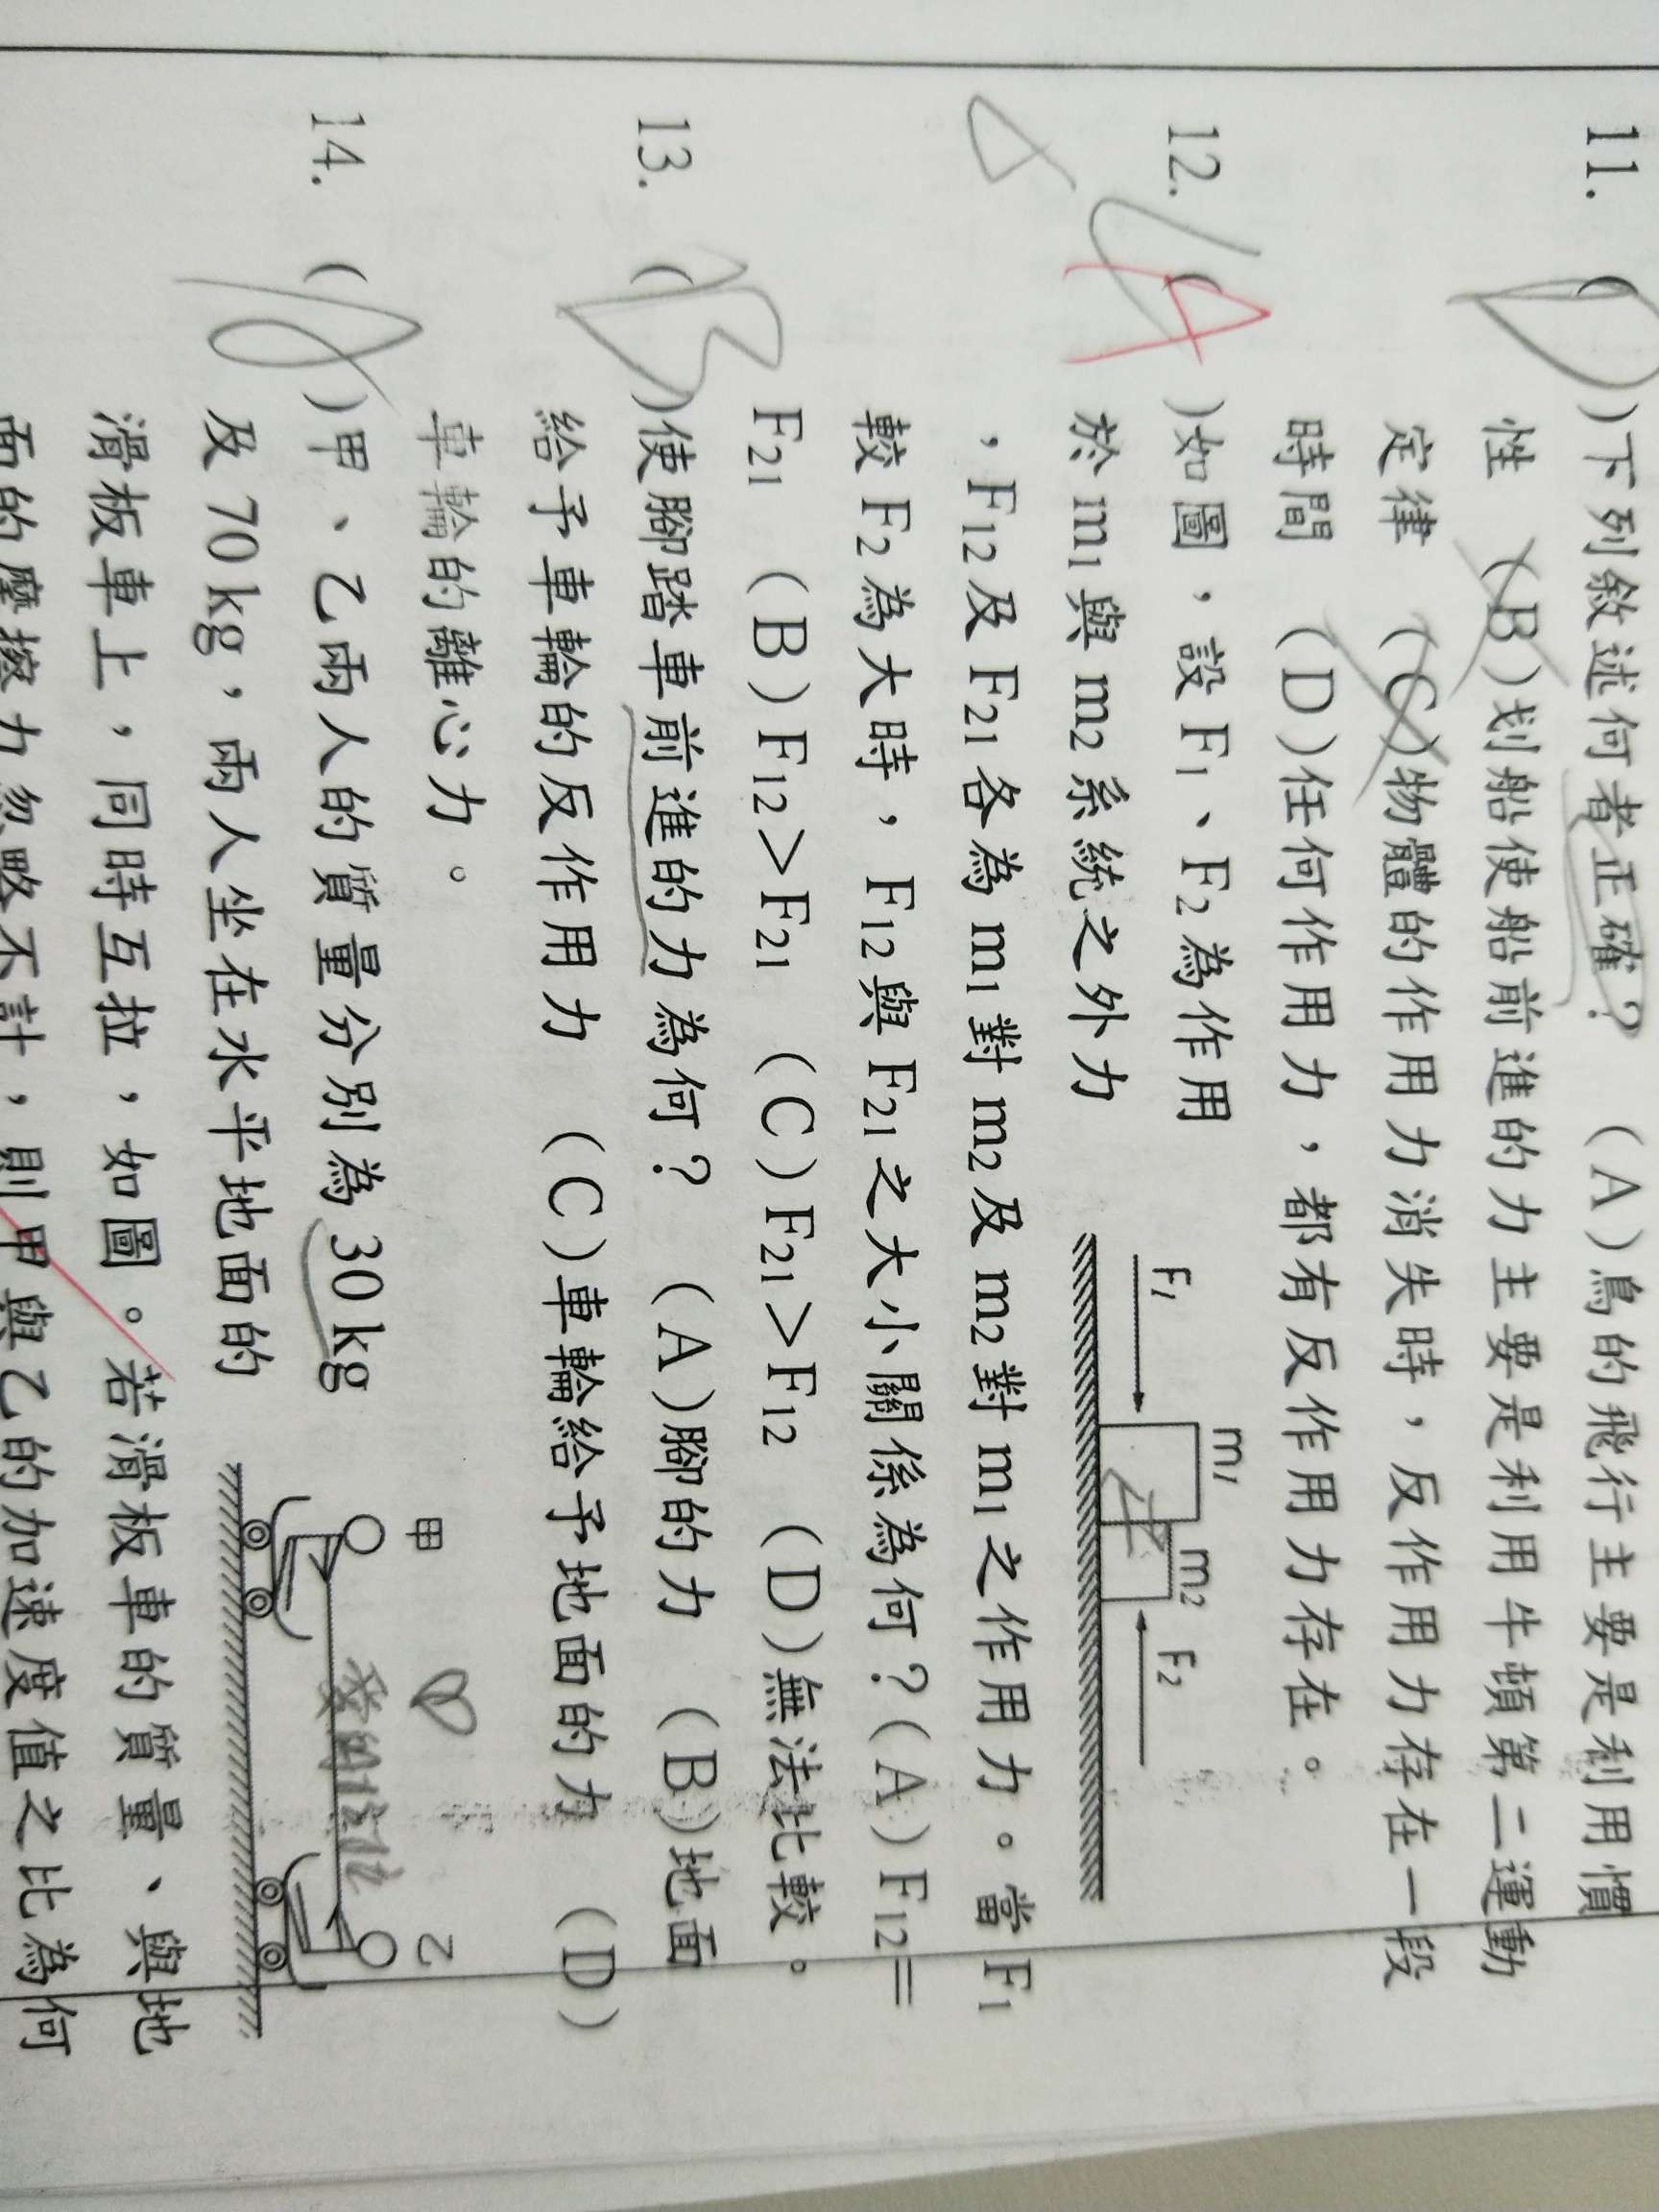 11. (D)下列敘述何者正確？ (A)鳥的飛行主要是利用慣
性 (B)划船使船前進的力主要是利用牛頓第二運動
定律 (C)物體的作用力消失時，反作用力存在一段
時間 (D)任何作用力，都有反作用力存在。
12. (A)如圖，設F₁、F₂為作用
於m₁與m₂系統之外力
，F₁₂及F₂₁各為m₁對m₂及m₂對m₁之作用力。當F₁
較F₂為大時，F₁₂與F₂₁之大小關係為何？(A)F₁₂＝
F₂₁ (B)F₁₂＞F₂₁ (C)F₂₁＞F₁₂ (D)無法比較。
F₁
m₁
m₂
F₂
13. (B)使腳踏車前進的力為何？ (A)腳的力 (B)地面
給予車輪的反作用力 (C)車輪給予地面的力 (D)
車輪的離心力。
14. ( )甲、乙兩人的質量分別為30 kg
及70 kg，兩人坐在水平地面的
滑板車上，同時互拉，如圖。若滑板車的質量、與地
面的摩擦力忽略不計，則甲與乙的加速度值之比為何
甲
乙